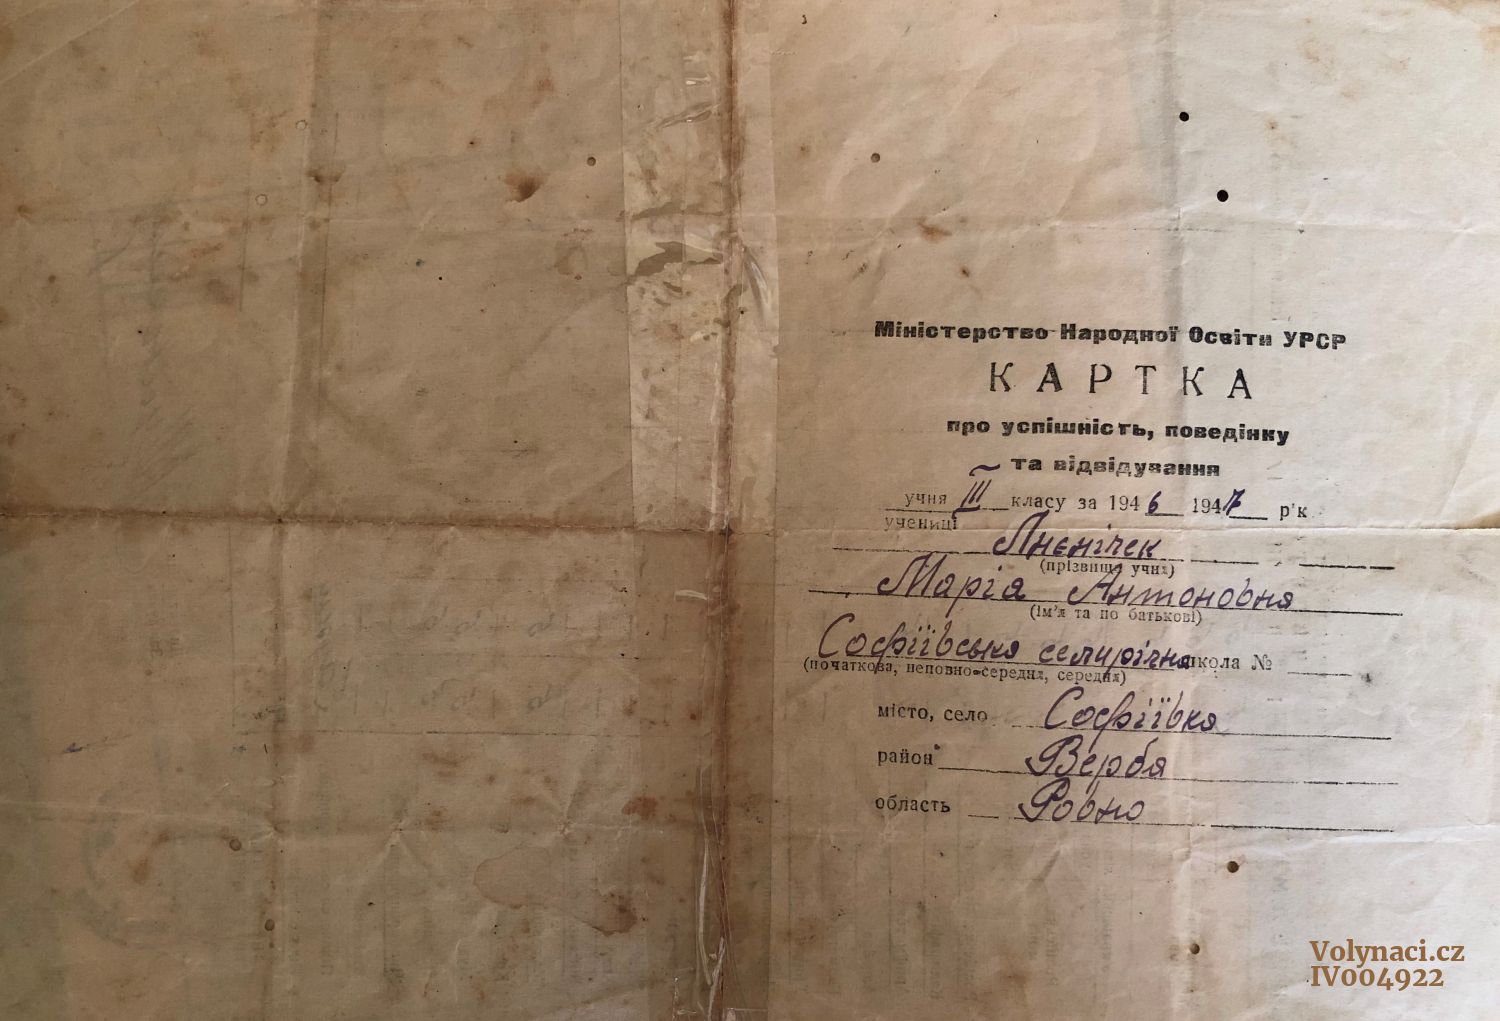 Міністерство Народної Освіти УРСР
КАРТКА
про успішність, поведінку
та відвідування
учня III класу за 1946 1947 р'к
учениці
Лнєнічек
(прізвище учня)
Марія Антоновна
(ім'я та по батькові)
Софіївська семирічна школа №
(початкова, неповно-середня, середня)
місто, село Софіївка
район Верба
область Ровно
Volynaci.cz
IV004922